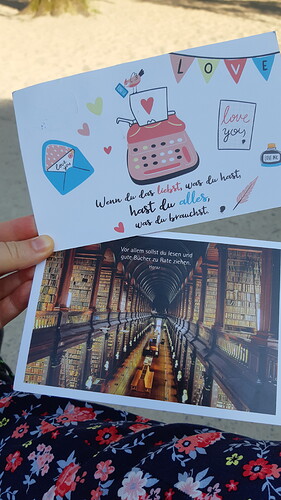 LOVE
love you
love you
Wenn du das liebst, was du hast,
hast du alles,
was du brauchst.
Vor allem sollst du lesen und
gute Bücher zu Rate ziehen.